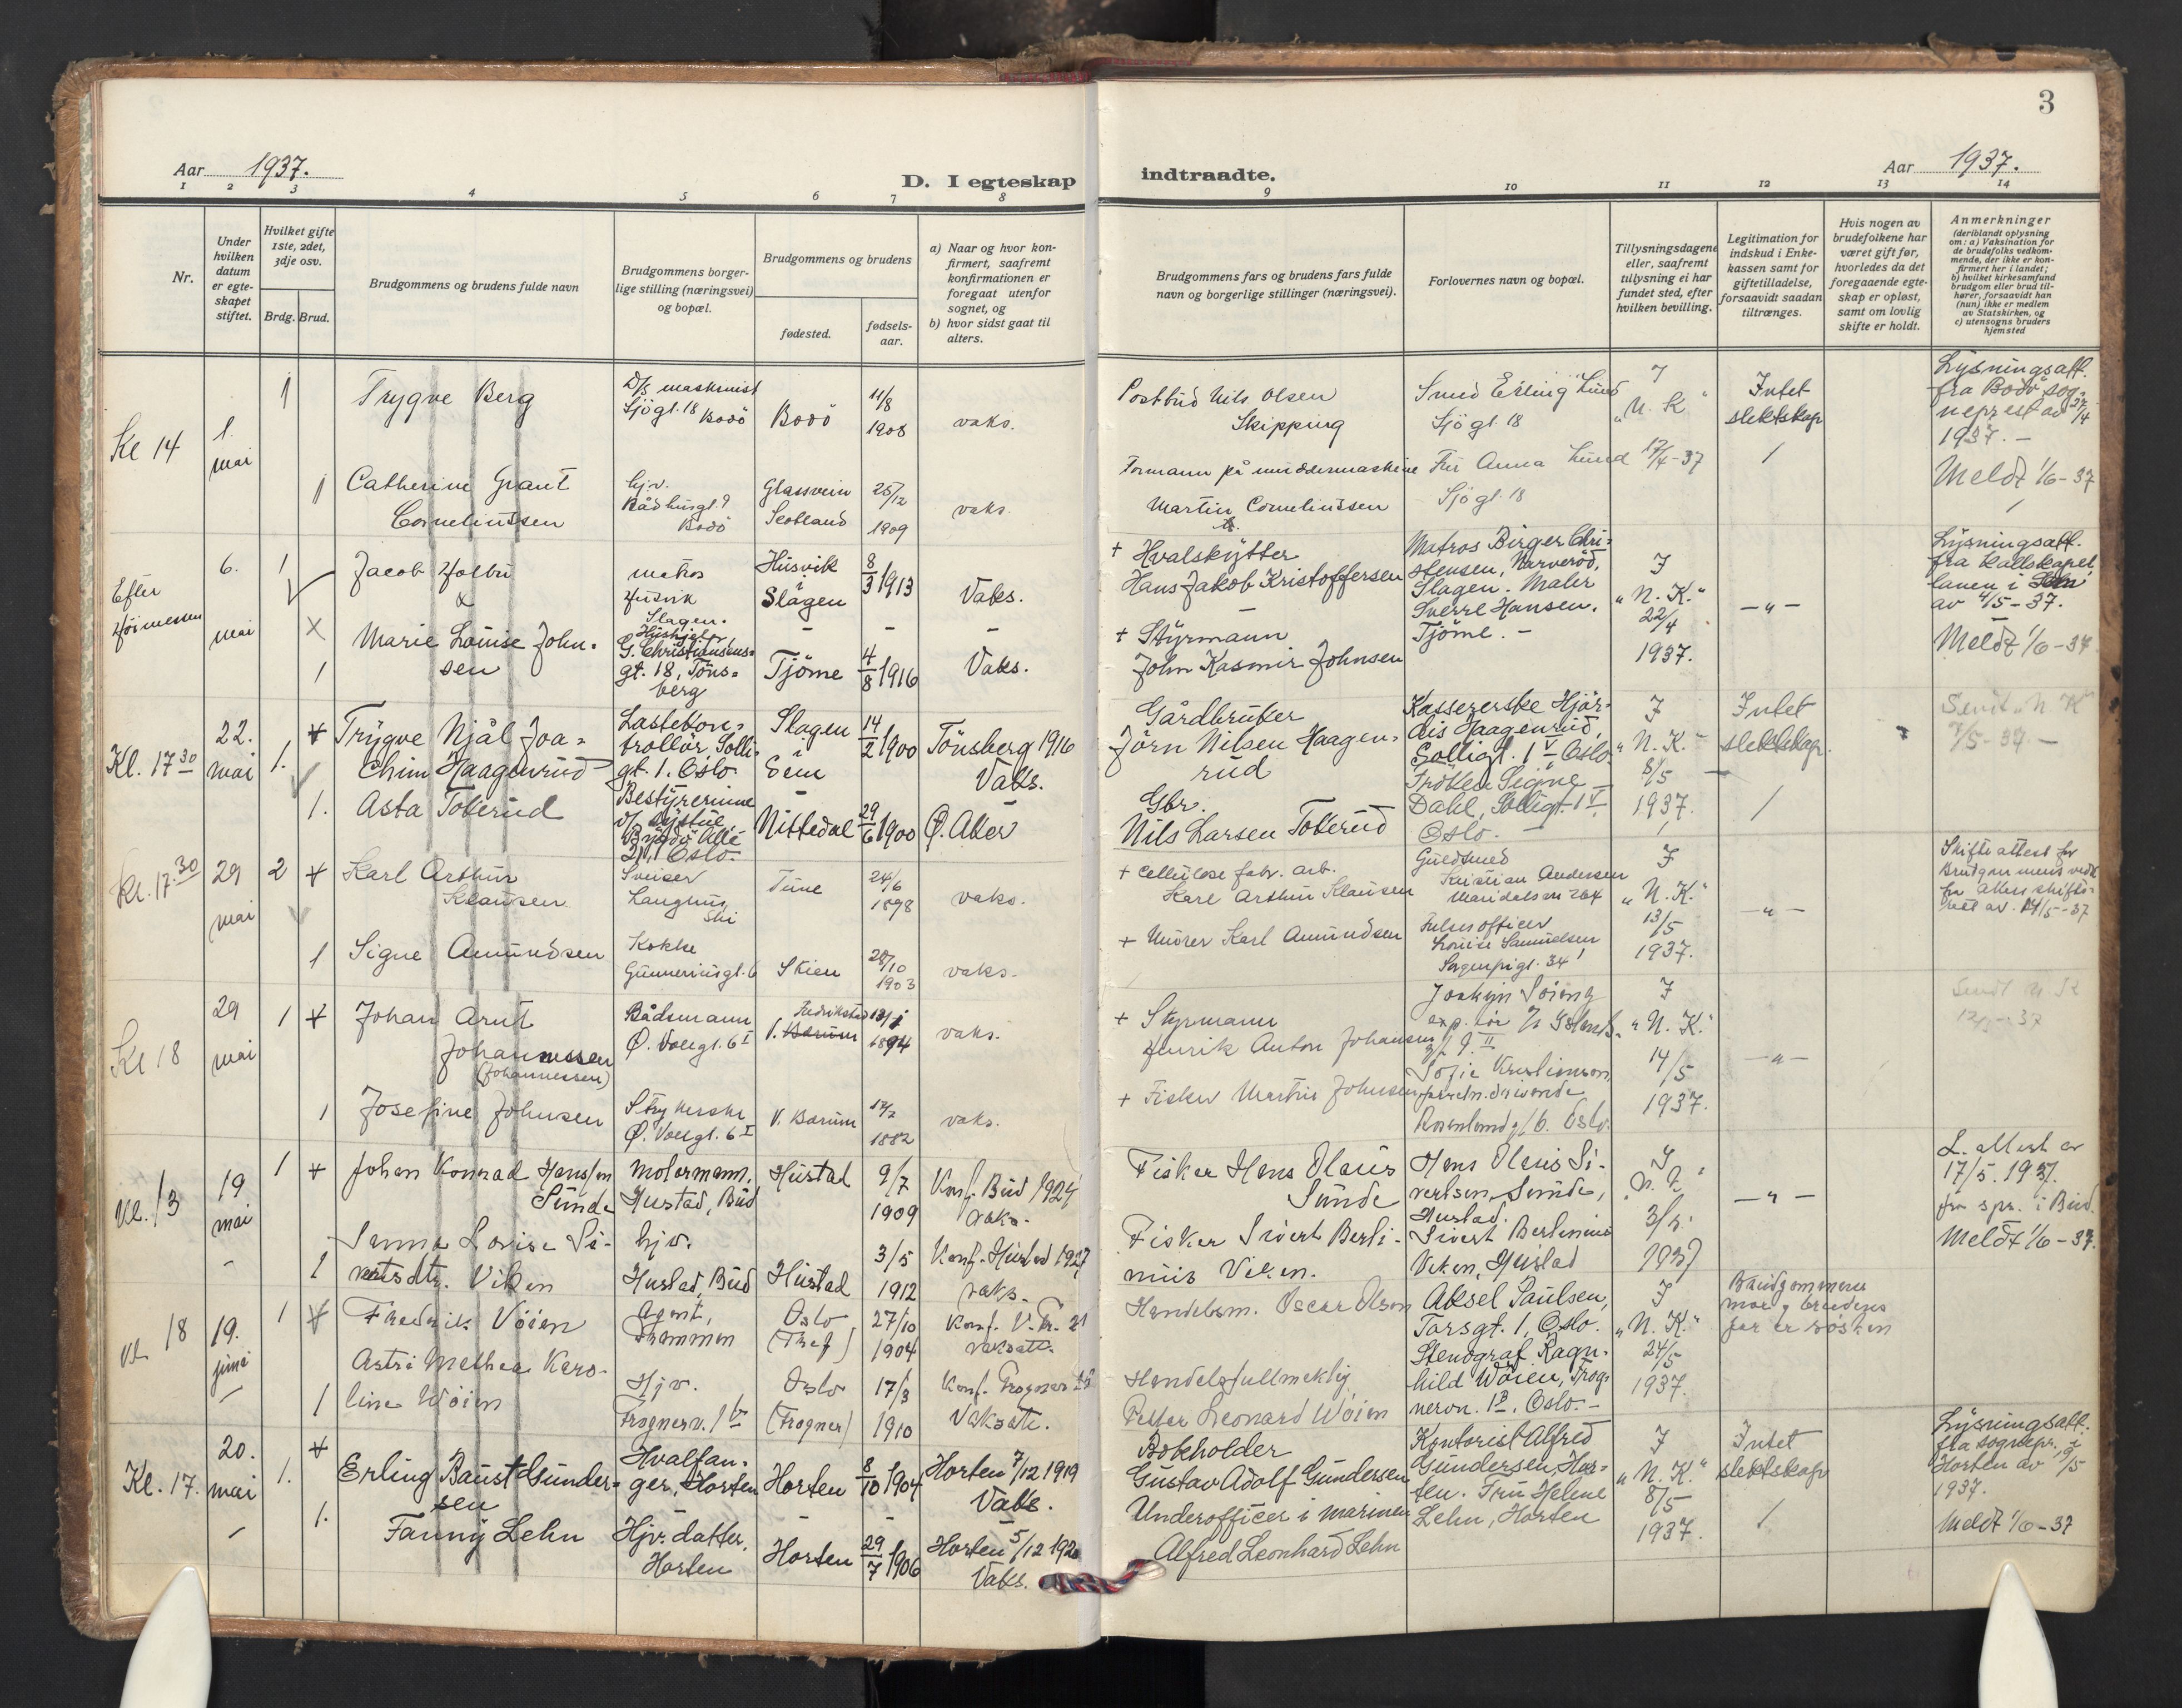 3
Aar 1937.
D. I egteskap indtraadte.
Aar 1937.
1 2 3 4 5 6 7 8 9 10 11 12 13 14
Nr.
Under hvilken datum er egteskapet stiftet.
Hvilket gifte 1ste, 2det, 3dje osv.
Brdg. Brud.
Brudgommens og brudens fulde navn
Brudgommens borgerlige stilling (næringsvei) og bopæl.
Brudgommens og brudens
fødested.
fødselsaar.
a) Naar og hvor konfirmert, saafremt konfirmationen er foregaat utenfor sognet, og
b) hvor sidst gaat til alters.
Brudgommens fars og brudens fars fulde navn og borgerlige stillinger (næringsvei).
Forlovernes navn og bopæl.
Tillysningsdagene eller, saafremt tillysning ei har fundet sted, efter hvilken bevilling.
Legitimation for indskud i Enkekassen samt for giftetilladelse, forsaavidt saadan tiltrænges.
Hvis nogen av brudefolkene har været gift før, hvorledes da det foregaaende egteskap er opløst, samt om lovlig skifte er holdt.
Anmerkninger
(deriblandt oplysning om: a) Vaksination for de brudefolks vedkommende, der ikke er konfirmert her i landet; b) hvilket kirkesamfund brudgom eller brud tilhører, forsaavidt han (hun) ikke er medlem av Statskirken, og c) utensogns bruders hjemsted
Kl 14
1. mai
1
Trygve Berg
D/s maskinist
Sjögt. 18 Bodö
Bodö
11/8 1908
vaks.
Postbud Nils Olsen
Skipping
Smed Erling Lund
Sjögt 18
I
"N. K"
17/4-37
Intet
slektskap
Lysningsatt.
fra Bodö sog-
neprest av 27/4
1937. -
Meldt 1/6-37
1
Catherine Grant
Cornelinssen
hjv.
Rådhusgt. 9
Bodö
Scotland
25/12
1909
vaks.
Formann på muddermaskine
Martin Cornelinssen
Fru Anna Lund
Sjögt. 18
Efter
6. mai
1
Jacob Holbu
&
matros
Husvik
Slagen.
Husvik
i
Slagen
8/3 1913
Vaks.
+ Hvalskytter
Hans Jakob Kristoffersen
Matros Birger Chri-
stensen, Narveröd,
Slagen. Maler
Sverre Hansen.
Tjöme. -
I
"N. K."
22/4
1937.
-"-
Lysningsatt.
fra
i Sem
av 4/5-37.
Meldt 1/6-37
1
Marie Louise John-
sen
Hushjelp
G. Christiansens-
gt. 18, Töns-
berg
Tjöme
4/8 1916
Vaks.
+ Styrmann
John Kasmir Johnsen
Kl. 17 30
22. mai
1.
Trygve Njål Joa-
chim Haagenrud
Lastekon-
trollör Solli-
gt. 1. Oslo
Slagen
i
Sem
14/2 1900
Tönsberg 1916
Vaks.
Gårdbruker
Jörn Nilsen Haagen-
rud
Kassererske Hjör-
dis Haagenrud,
Solligt. 1 V Oslo.
Fröken Signe
Dahl, Solligt. 1 V.
Oslo. -
I
"N. K."
8/5
1937.
Intet
slektskap.
Sendt N. K
7/5-37 -
1.
Asta Tokerud
Bestyrerinne
Bygdö Allé
21, Oslo.
Nittedal
29/6 1900
Ö. Aker
Gbr.
Nils Larsen Tokerud
Kl. 17.30
29 mai
2
Karl Arthur
Klausen
Sveiser
Langhus,
Ski
Tune
24/6
1898
vaks.
+ Cellulose fabr. arb.
Karl Arthur Klausen
Guldsmed
Kristian Andersen
Maridalsvn 264
I
"N. K."
13/5
1937.
-"-
Skifteattest for
Brudgommens vedk
fra Akers skifte-
rett av. 14/5-37
1
Signe Amundsen
Kokke
Gunneriusgt. 6
Skien
28/10
1903
vaks.
+ Murer Karl Amundsen
Frelsesofficer
Lovise Samuelsen
34
Kl 18
29 mai
1
Johan Arnt
Johannessen
(Johannessen)
Bådsmann
Ö. Vollgt. 6 I
Fredrikstad
V. Barum
1894
vaks.
+ Styrmann
Henrik Anton Johansen
I
"N. K."
14/5
1937.
-"-
Sendt N K
1
Josefine Johnsen
Strykerske
Ö. Vollgt. 6 I
V. Barum
1882
vaks.
+ Fisker Martin Johnsen
Sofie Kristianson,
Oslo.
Kl. 13
19 mai
1
Johan Konrad Hanssen
Sunde
Motormann.
Hustad, Bud
Hustad
9/7
1909
Konf. Bud 1924
vaks.
Fisker Hans Olaus
Sunde
Hans Olaus Si-
vertsen, Sunde,
Hustad.
Sivert Berlinius
Viken, Hustad
I
"N. K."
1937
-"-
L. attest av
17/5. 1937.
fra spr. i Bud.
Meldt 1/6-37.
1
Sanna Lovise Si-
vertsdtr. Viken
hjv.
Hustad, Bud
Hustad
3/5
1912
Konf. Hustad 1927
vaks.
Fisker Sivert Berli-
nius Viken.
Kl 18
19. juni
1
Fredrik Vöien
Agent,
Drammen
Oslo
27/10
1904
Konf. V. Fr. 21
vaksatt.
Handelsm. Oscar Olsen
Aksel Paulsen,
Torsgt. 1, Oslo.
Stenograf Ragn-
hild Wöien, Frog-
nervn. 1 B. Oslo.-
I
"N. K."
24/5
1937.
Brudgommens
mor og brudens
far er sösken
1
Astri Mathea Karo-
line Wöien
Hjv.
Frognerv. 1 b
Oslo
(Frogner)
17/3
1910
Konf. Frogner 25
Vaksatt.
Handelsfullmektig
Petter Leonard Wöien
Kl. 17.
20. mai
1.
Erling Baust Gunder-
sen
Hvalfan-
ger, Horten
Horten
8/10 1904
Horten 7/12 1919
Vaks.
Bokholder
Gustav Adolf Gundersen
Kontorist Alfred
Gundersen, Hor-
ten. Fru Helene
Lehn, Horten
I
"N. K."
8/5
1937.
Intet
slektskap
Lysningsatt.
fra sognepr. i
Horten av
1937.
Meldt 1/6-37
1.
Fanny Lehn
Hjv. datter.
Horten
Horten
29/7 1906
Horten 5/12 1920
Vaks.
Underofficer i marinen
Alfred Leonhard Lehn